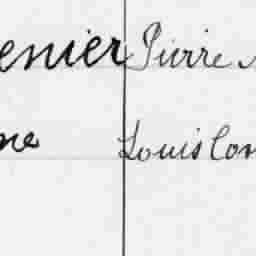 enier Pierre
ne Louis Con